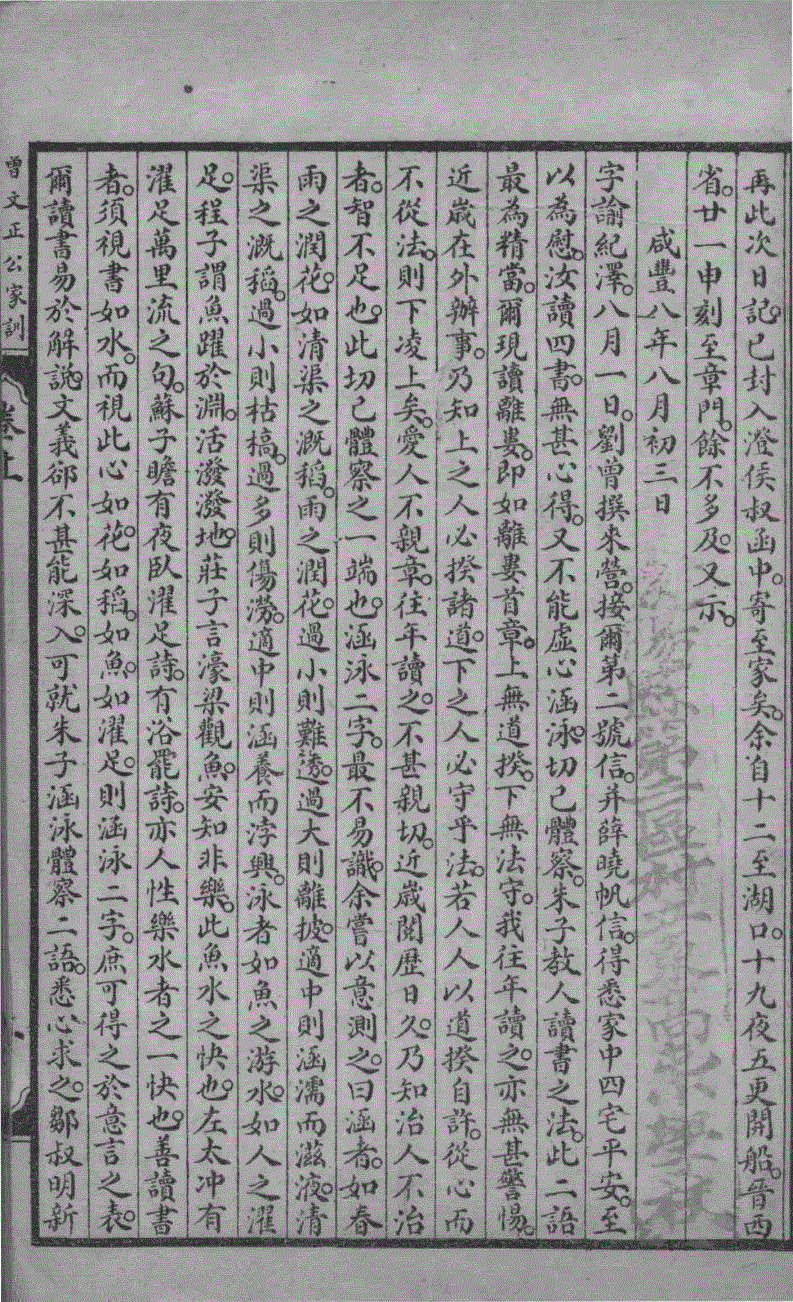 再此次日記。已封入澄侯叔函中。寄至家矣。余自十二至湖口。十九夜五更開船。晉西
省。廿一申刻至章門。餘不多及。又示。
咸豐八年八月初三日
字諭紀澤。八月一日。劉曾撰來營。接爾第二號信。并薛曉帆信。得悉家中四宅平安。至
以為慰。汝讀四書。無甚心得。又不能虛心涵泳。切己體察。朱子教人讀書之法。此二語
最為精當。爾現讀離婁。即如離婁首章。上無道揆。下無法守。我往年讀之。亦無甚警惕。
近歲在外辦事。乃知上之人必揆諸道。下之人必守乎法。若人人以道揆自許。從心而
不從法。則下凌上矣。愛人不親章。往年讀之。不甚親切。近歲閱歷日久。乃知治人不治
者。智不足也。此切己體察之一端也。涵泳二字。最不易識。余嘗以意測之。曰涵者。如春
雨之潤花。如清渠之溉稻。雨之潤花。過小則難透。過大則離披。適中則涵濡而滋液。清
渠之溉稻。過小則枯槁。過多則傷澇。適中則涵養而浡興。泳者如魚之游水。如人之濯
足。程子謂魚躍於淵。活潑潑地。莊子言濠梁觀魚。安知非樂。此魚水之快也。左太冲有
濯足萬里流之句。蘇子瞻有夜臥濯足詩。有浴罷詩。亦人性樂水者之一快也。善讀書
者。須視書如水。而視此心如花。如稻。如魚。如濯足。則涵泳二字。庶可得之於意言之表。
爾讀書易於解說文義。卻不甚能深入。可就朱子涵泳體察二語。悉心求之。鄒叔明新
曾文正公家訓
卷上